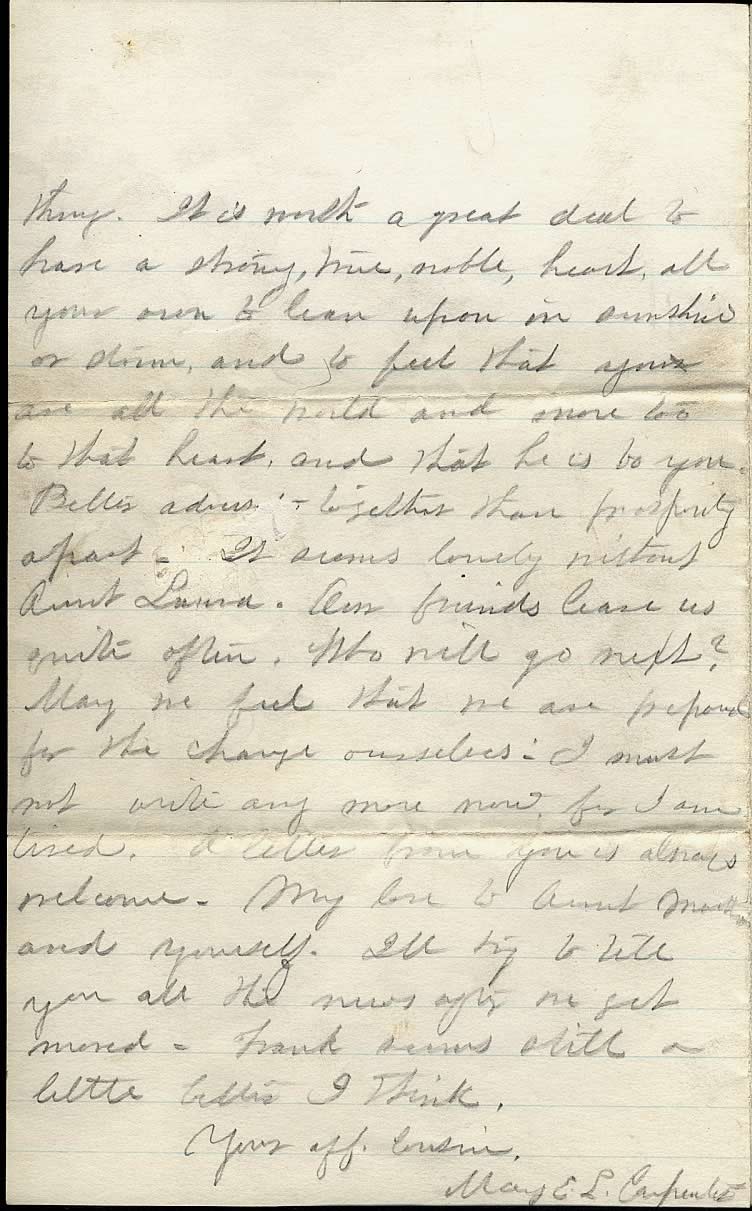 thing. It is worth a great deal to
have a strong, true, noble, heart, all
your own to lean upon in sunshine
or storm, and to feel that you
are all the world and more too
to that heart, and that he is to you.
Better together than prosperity
apart - It seems lonely without
Aunt Laura. Our friends leave us
quite often. Who will go next?
May we feel that we are prepared
for the change ourselves - I must
not write any more now, for I am
tired. A letter from you is always
welcome - My love to Aunt
and yourself. I'll try to tell
you all the news after we get
moved - Frank seems still a
little better I think.
Your aff. Cousin,
Mary E. L. Carpenter